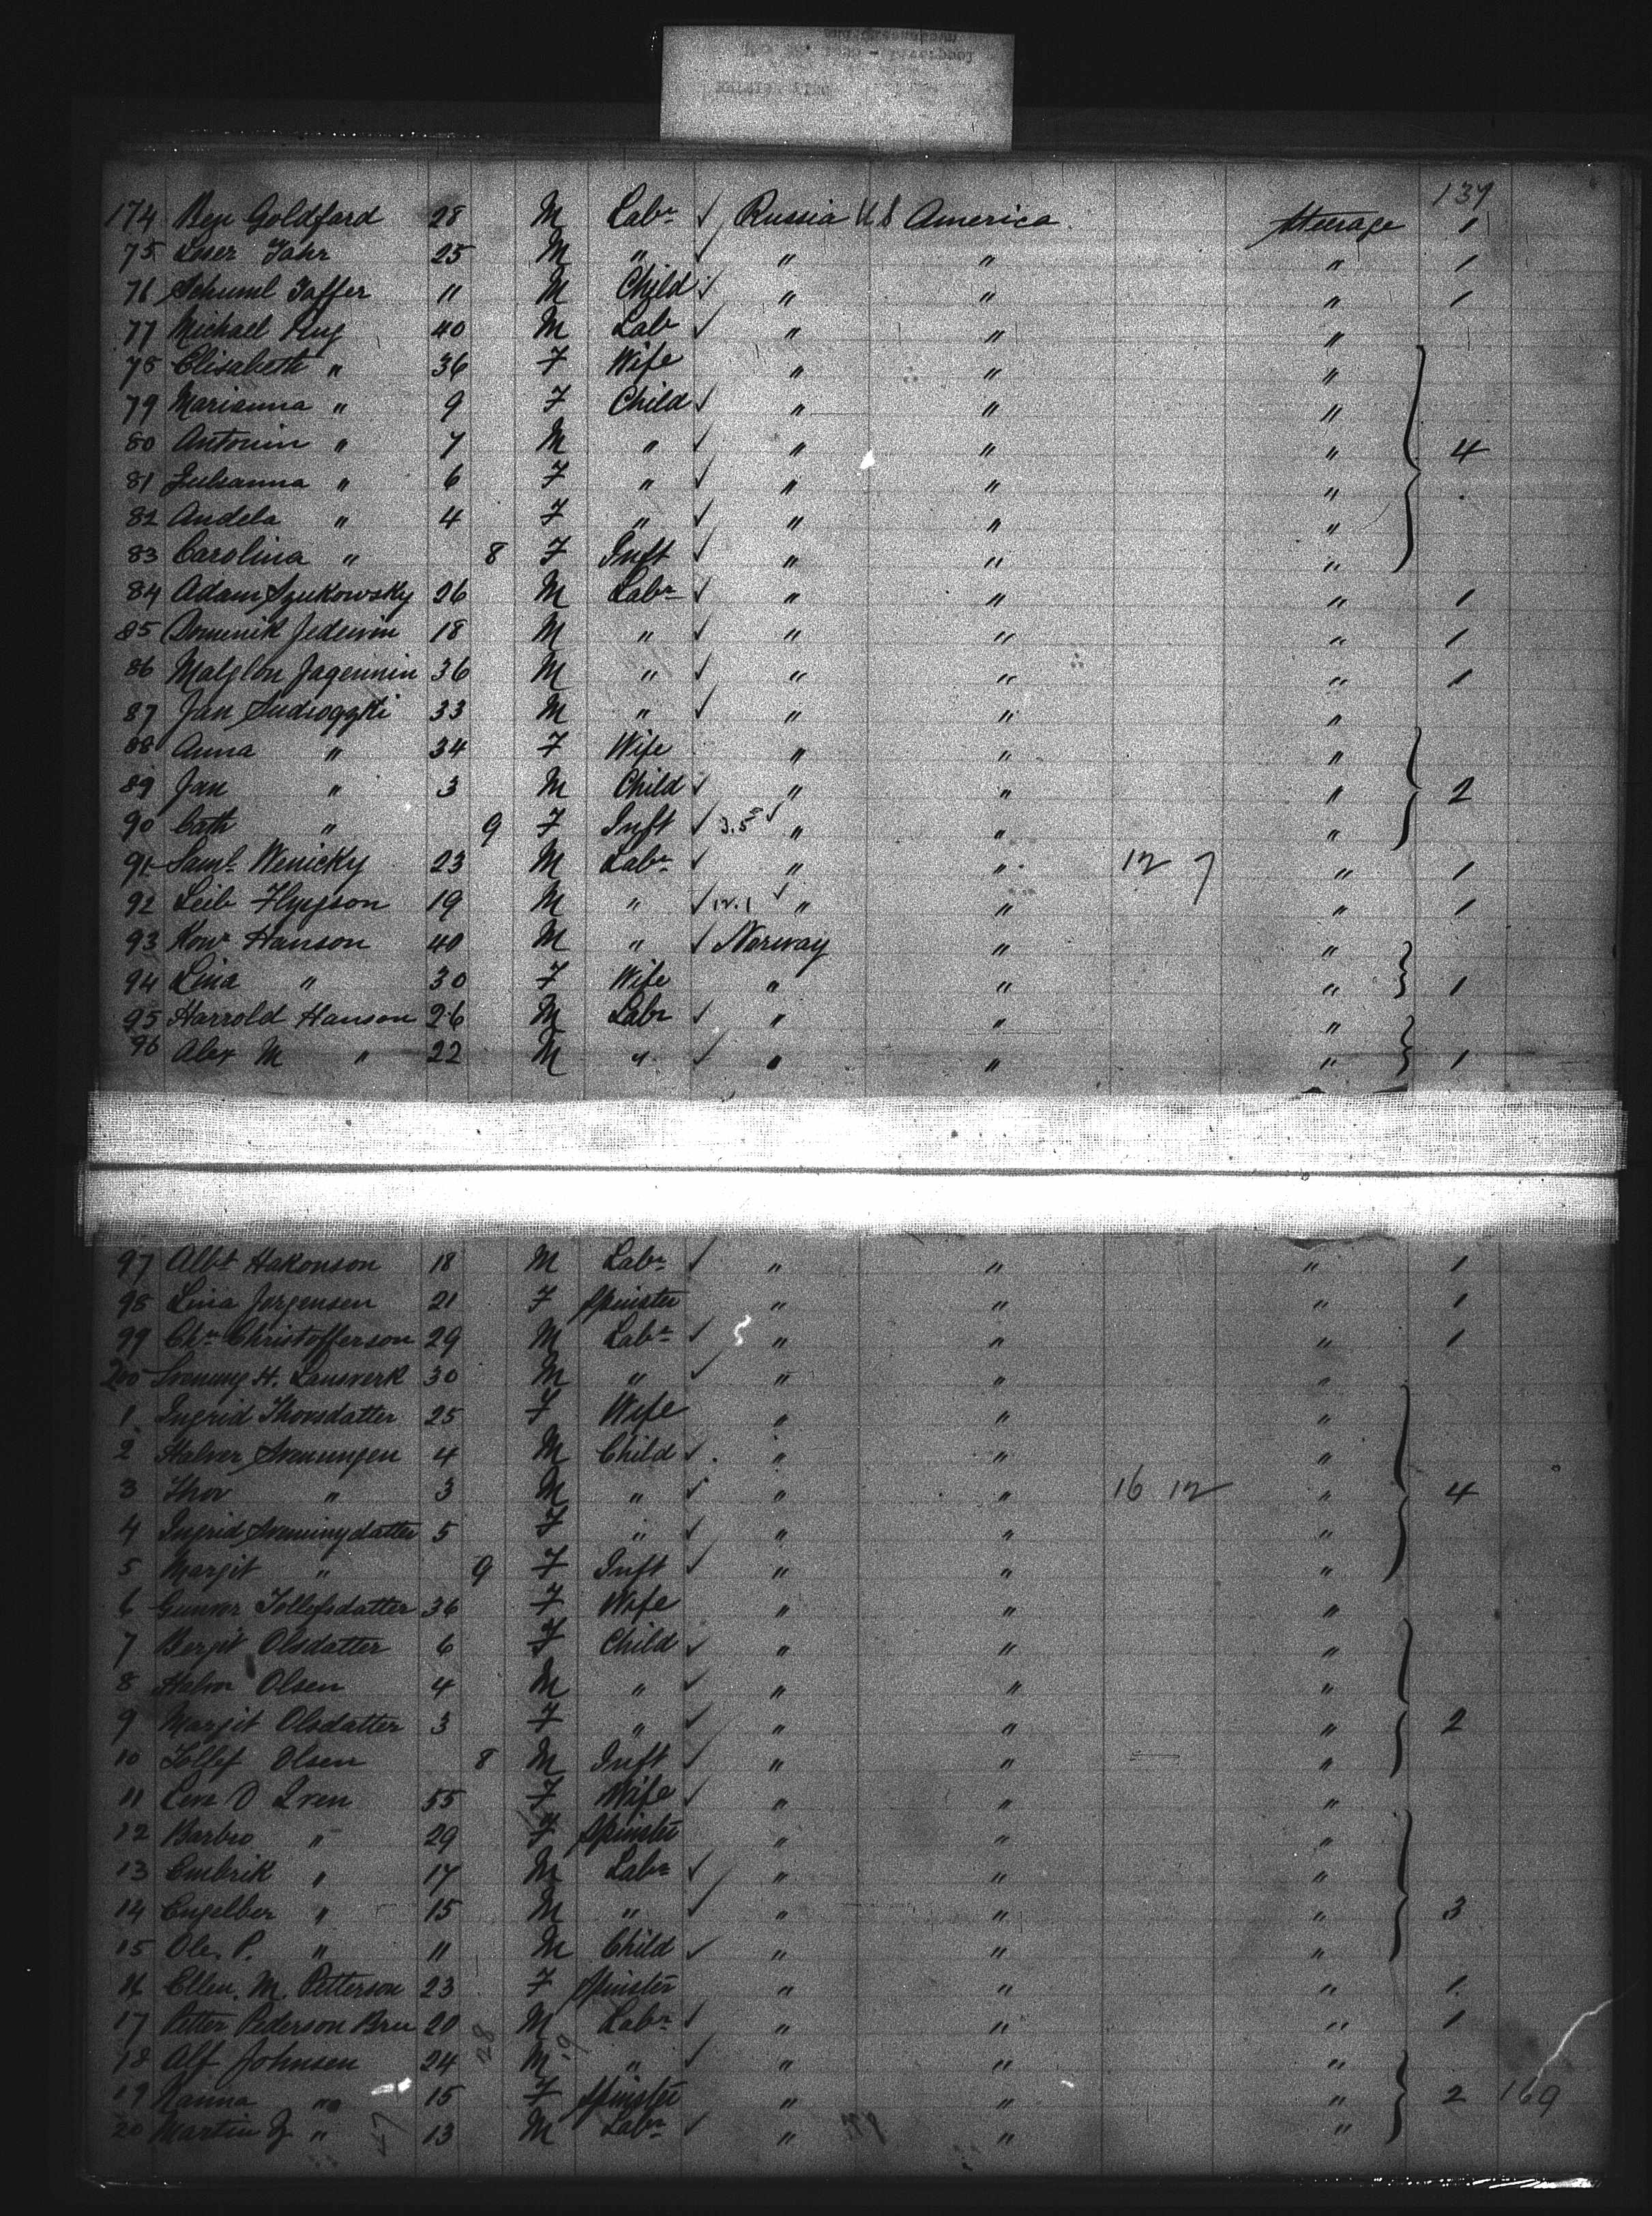 137
174 Benj Goldfard 28 M Labr ✓ Russia U S America Steerage 1
75 Leser Jahr 25 M " ✓ " " " 1
76 Schuml Joffer 11 M Child ✓ " " " 1
77 Michael 40 M Lab ✓ " " "
78 Elisabeth " 36 F Wife " " "
79 Marianna " 9 F Child ✓ " " "
80 Antonin " 7 M " ✓ " " " 4
81 Julianna " 6 F " ✓ " " "
82 Andela " 4 F " ✓ " " "
83 Carolina " 8 F Inft ✓ " " "
84 Adam Szukowsky 26 M Labr ✓ " " " 1
85 Dominik 18 M " ✓ " " " 1
86 36 M " ✓ " " " 1
87 Jan 33 M " ✓ " " "
88 Anna " 34 F Wife " " "
89 Jan " 3 M Child ✓ " " " 2
90 Cath " 9 F Inft ✓ " " "
91 Saml Wenicky 23 M Labr ✓ " " 12 7 " 1
92 Leib 19 M " ✓ 12.1 ✓ " " " 1
93 Hanson 40 M " ✓ Norway " "
94 Lina " 30 F Wife " " " 1
95 Harrold Hanson 26 M Labr ✓ " " "
96 Alex M " 22 M " ✓ " " " 1
97 Albt Hakonson 18 M Labr ✓ " " " 1
98 Lina Jorgensen 21 F Spinster " " " 1
99 Chr Christofferson 29 M Labr ✓ " " " 1
200 Svenung H. Lansverk 30 M " ✓ " " "
1 Ingrid Thorsdatter 25 F Wife " " "
2 Halvor Svenungen 4 M Child ✓ " " "
3 Thor " 3 M " ✓ " " 16 12 " 4
4 Ingrid Svenungdatter 5 F " ✓ " " "
5 Margit " 9 F Inft ✓ " " "
6 Gunvor Tollefsdatter 36 F Wife " " "
7 Bergit Olsdatter 6 F Child ✓ " " "
8 Halvor Olsen 4 M " ✓ " " "
9 Margit Olsdatter 3 F " ✓ " " " 2
10 Tollef Olsen 8 M Inft ✓ " " "
11 55 F Wife ✓ " " "
12 Barbro " 29 F Spinster " " "
13 Embrik " 17 M Labr ✓ " " "
14 Engelber " 15 M " ✓ " " " 3
15 Ole. P. " 11 M Child ✓ " " "
16 Ellen. M. Petterson 23 F Spinster " " " 1
17 Petter Pederson Bru 20 M Labr ✓ " " " 1
18 Alf Johnsen 24 M " ✓ " " "
19 Nanna " 15 F Spinster " " " 2 169
20 Martin " 13 M Labr ✓ " " "